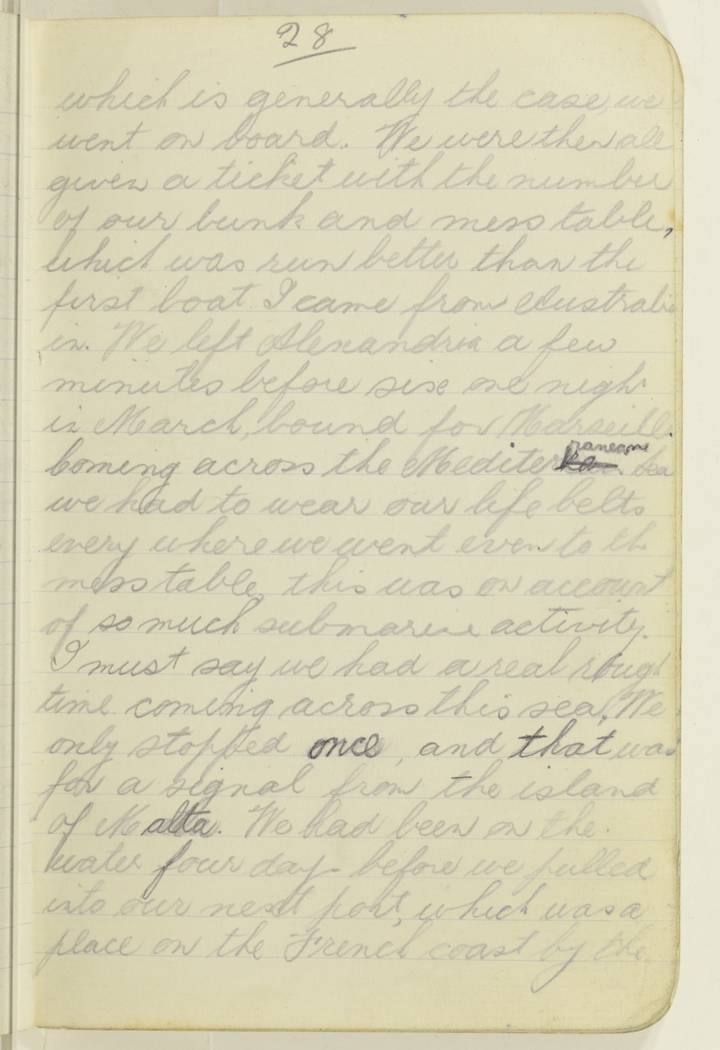 28
which is generally the case, we
went on board. We were then all
given a ticket with the number
of our bunk and mess table,
which was run better than the
first boat I came from Australia
in. We left Alexandria a few
minutes before six one night
in March, bound for Marseilles.
Coming across the Mediterranean Sea
we had to wear our life belts
every where we went even to the
mess table, this was on account
of so much submarine activity.
I must say we had a real rough
time coming across this sea. We
only stopped once, and that was
for a signal from the island
of Malta. We had been on the
water four days before we pulled
into our next port, which was a
place on the French coast by the